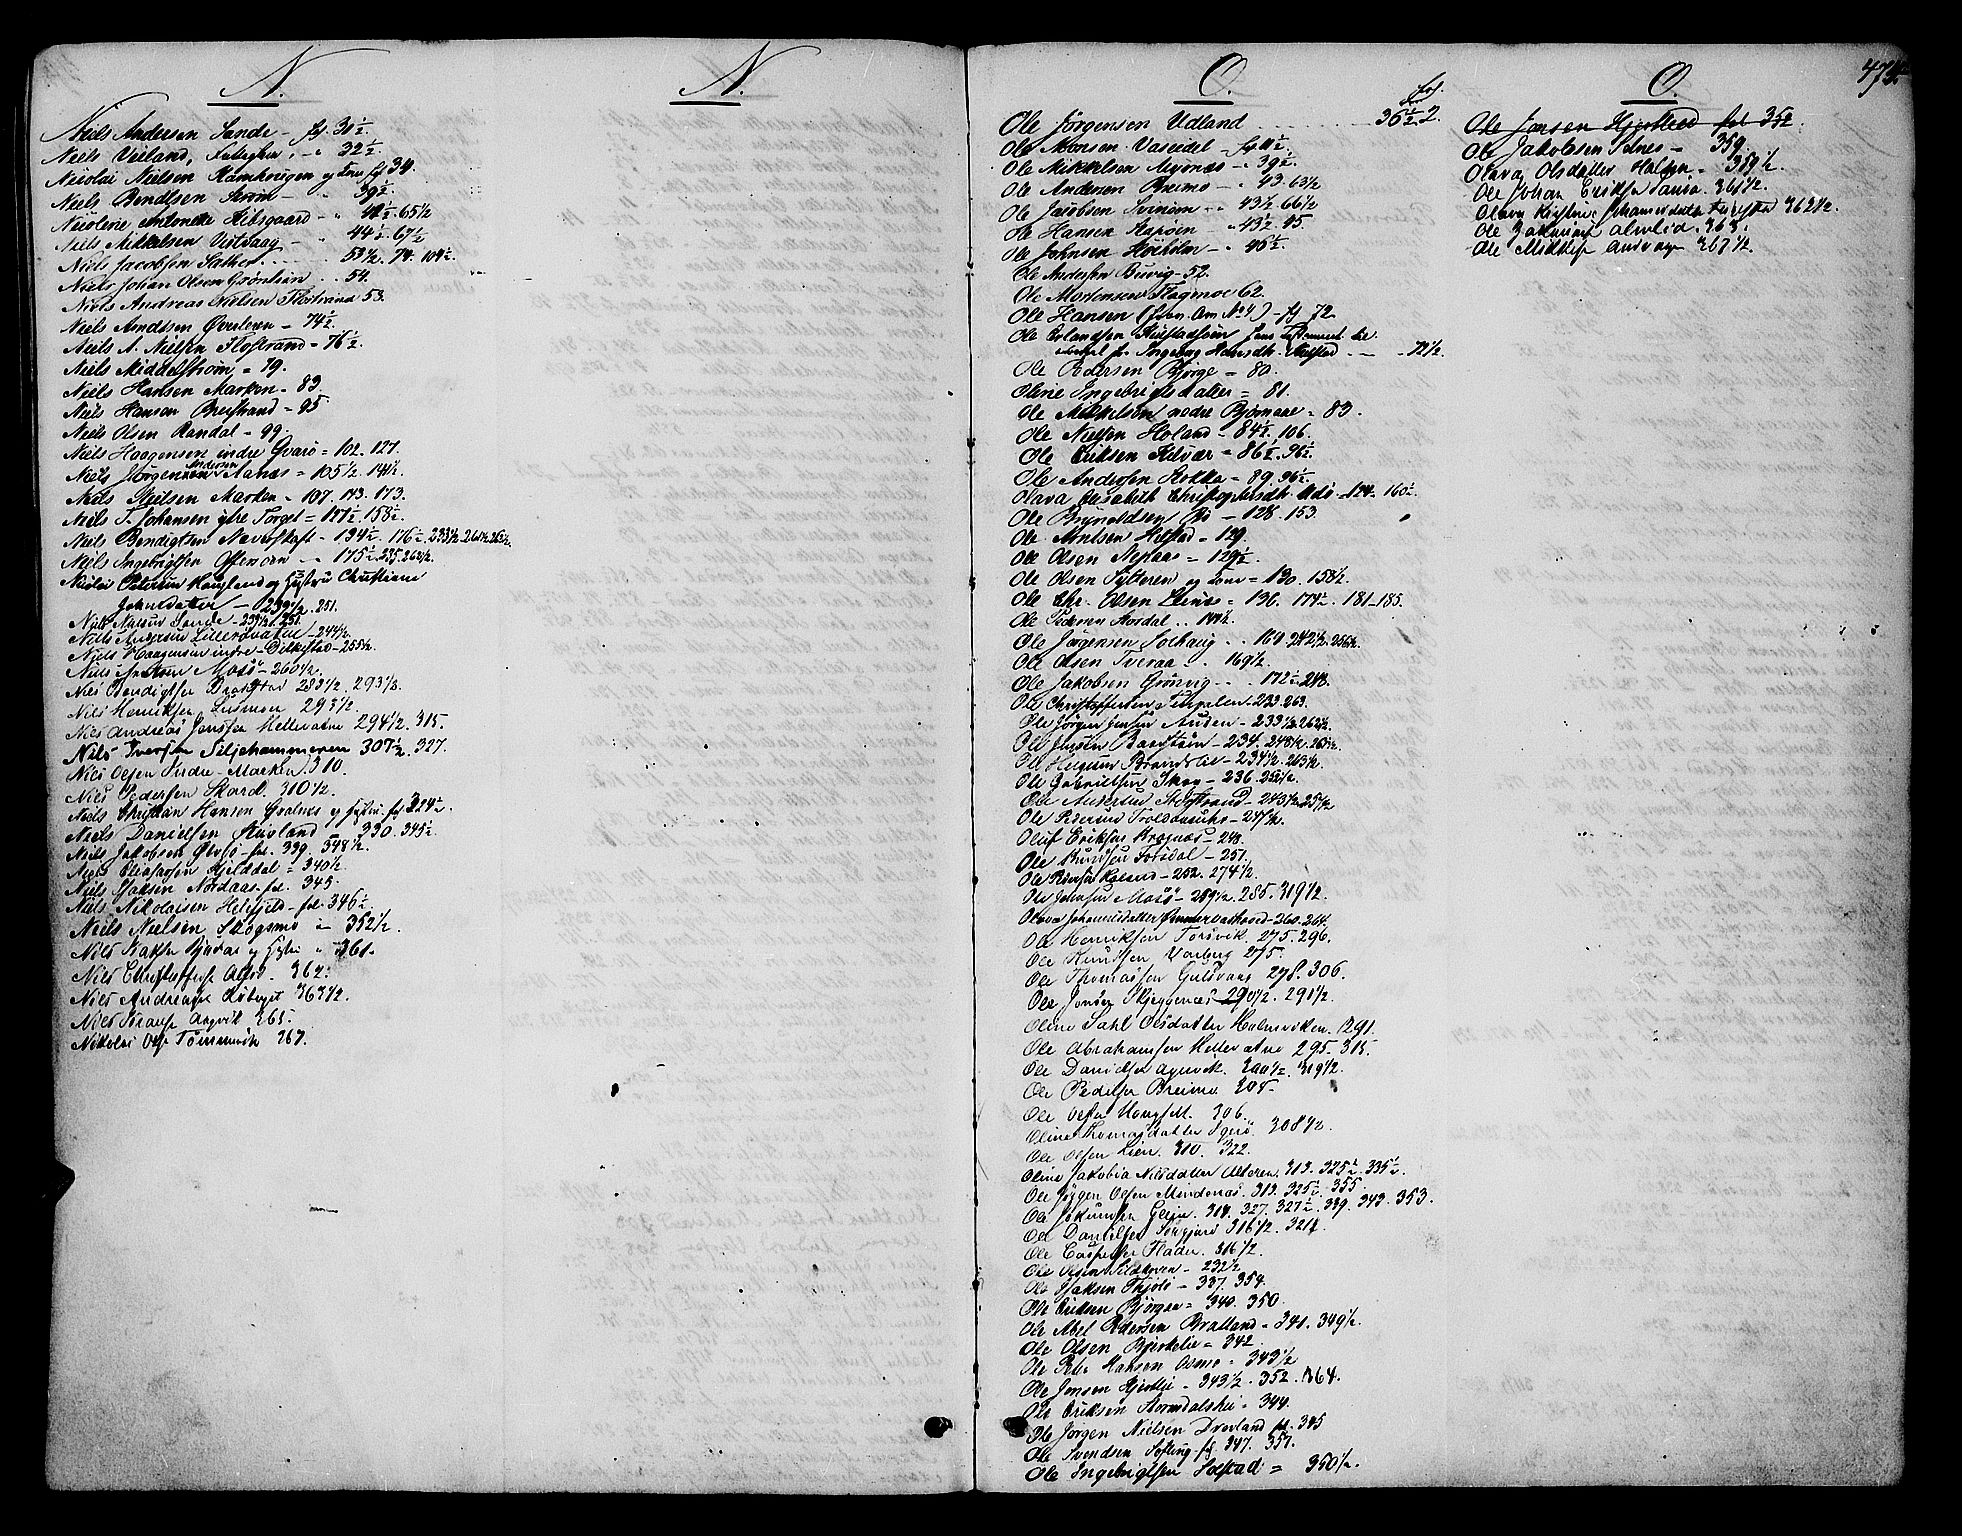 N.
Niels Andersen Sande - fol. 30½.
Niels Vieland, - 32½
Nicolai Nielsen Ramhvigen og Frue fol 34.
Niels Bendtsen Strøm - 39½.
Nicoline Antonette Kibsgaard - 41½. 65½
Niels Mikkelsen Vestvaag - 44½. 67½
Niels Jacobsen Sather. 53½. 74. 104½.
Niels Johan Olsen Grønlien . . 54.
Niels Andreas Nielsen Flostrand 53.
Niels Arndtsen Øverleren = 74½.
Niels A. Nielsen Flostrand = 76½.
Niels Middelstrøm = 79.
Niels Hansen Marken = 83.
Niels Hansen Breistrand = 95
Niels Olsen Randal = 99.
Niels Haagensen indre Qvarø = 102. 127.
Niels Jørgensen Andersen Aanæs = 105½. 141½.
Niels Nielsen Marken - 107. 143. 173.
Niels T. Johansen ytre Torget = 121½. 158½.
Niels Bendigtsen Naverskaft - 134½. 176½. 233½. 261½. 263½.
Niels Ingebrigtsen Offersøen - 175½. 235. 262½.
Nicolai Petersen Haugland og Hustru Christiane
Johnsdatter - 239½. 251.
Niels Nielsen Sande - 239½. 251.
Niels Andersen Lillerødvatnet - 244½.
Niels Haagensen indre - Dilkestad - 255½.
Niels Masø - 260½.
Nils Bendigtsen 283½. 293½.
Nils Henriksen Lusmoen 293½.
Nils Andreas Jenssen Hellervatne 294½. 315.
Nils Iversen Siljehammeren 307½. 327.
Nils Olsen Indre-Marken. 310.
Nils Pedersen Skard. 310½.
Niels Christian Hansen Gvalnes og Hustru fol 324½.
Niels Danielsen Stuvland - 330. 345½.
Niels Jakobsen Qvalø - fol. 339. 348½.
Niels Eliassen Hjelddal = 340½.
Niels Isaksen Nordaas - fol. 345.
Niels Nikolaisen Hellesfjeld - fol. 346½
Niels Nielsen Skogsmo = 352½.
Nils Isaksen og Hustru 361.
Nils Christoffersen 362.
Nils Andreassen 363½.
Nils 365.
Nikolai Olsen Tømmervik 367.
N.
O.
fol.
Ole Jørgensen Udland 36½. 2.
Ole Monsen Vasedel - fol 11½.
Ole Mikkelsen - 39½.
Ole Andersen Breimo - 43. 63½
Ole Jacobsen Svinøen - 43½. 66½
Ole Hansen - 43½. 45.
Ole Johnsen Høiholm - 46½.
Ole Andersen Buvig - 52.
Ole Mortensen Flagmoe 62.
Ole Hansen (No 4) - fol 72.
Ole Erlandsen
fol. Ingeborg Hansdtr. 72½.
Ole Pedersen Bjørge = 80.
Oline Ingebrigtsdatter = 81.
Ole Mikkelsen nedre Bjørnaae = 83.
Ole Nielsen Holand - 84½. 106.
Ole Eriksen Kelvær = 86½. 96½.
Ole Andersen Rokke = 89. 96½.
Olava Elisabeth Christophersdtr Udø - 124. 160½.
Ole Brynoldsen Bø - 128. 153.
Ole Arntsen Helstad = 129.
Ole Olsen Nygaas = 129½.
Ole Olsen Tytteren og Søn = 130. 158½.
Ole Chr. Olsen = 136. 174½. 181-185.
Ole Pedersen Stordal . . 144½.
Ole Jørgensen Solhaug . . 164. 242½. 256½.
Ole Olsen Tveraa . . 169½.
Ole Jakobsen Grønvig . . . 172½. 248.
Ole Christoffersen 233. 263.
Ole Jørgen Jensen Auden - 233½. 262½.
Ole Jensen Baadstøen - 234. 248½. 263½.
Ole Helgesen Brandslie - 234½. 263½.
Ole Gabrielsen Skog - 236. 253½.
Ole Andersen Slotstrand - 243½. 254½
Ole Pedersen - 247½.
Oluf Eriksen Krognæs - 248.
Ole Knudsen Forsdal - 251.
Ole 252. 274½.
Ole Johnsen Masø - 259½. 285. 319½.
Olava Johannesdatter - 260. 264.
Ole Henriksen Torsvik. 275. 296.
Ole Knudsen Varberg 275.
Ole Thomassen Gulsvaag 278. 306.
Ole Jonsen Skjeggenæs 290½. 291½.
Oline Dahl Olsdatter Holmsviken. 291.
Ole Abrahamsen Hellervatne 295. 315.
Ole Danielsen Agervik. 300½. 319½.
Ole Pedersen Breimo 305.
Ole Olsen 306.
Oline Thomasdatter Igerø. 308½.
Ole Olsen Lien. 310. 322.
Oline Jakobia Nilsdatter Alteren. 313. 325½. 335½.
Ole Jørgen Olsen Mindenæs. 313. 325½. 355.
Ole 314. 327. 327½. 339. 343. 353.
Ole Danielsen 316½. 321.
Ole Caspersen Flader. 316½.
Ole Olsen Sildhoven - 232½
Ole Isaksen Thjøtø - 337. 354.
Ole Eriksen Bjørgaa = 340. 350.
Ole Abel Pedersen Bratland = 341. 349½.
Ole Olsen Bjerkelie = 342.
Ole Peder Hansen Osmo = 343½
Ole Jonsen Hjertlie - 343½. 352. 364.
Ole Eriksen Stormdalshei = 344
Ole Jørgen Nielsen Drevland fol. 345
Ole Svendsen Softing fol 347. 357.
Ole Ingebrigtsen Solstad = 350½.
O.
Ole Jonsen Hjertlied fol 352.
Ole Jakobsen - 359.
Olava Olsdatter Halsen - 359½
Ole Johan Eriksen 361½.
Olava Kristine Johannesdatter 362½.
Ole Zakariasen Almlid. 363.
Ole Mikkelsen 367½.